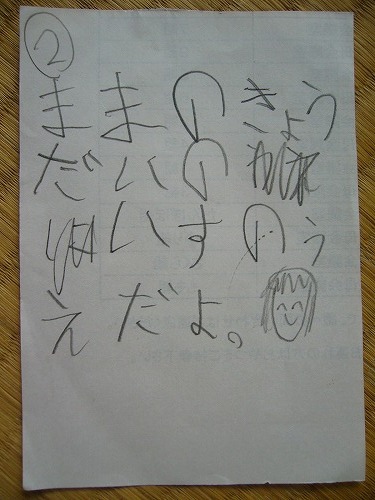 ②
ままのきょう
だいの
いすのう
えだよ。